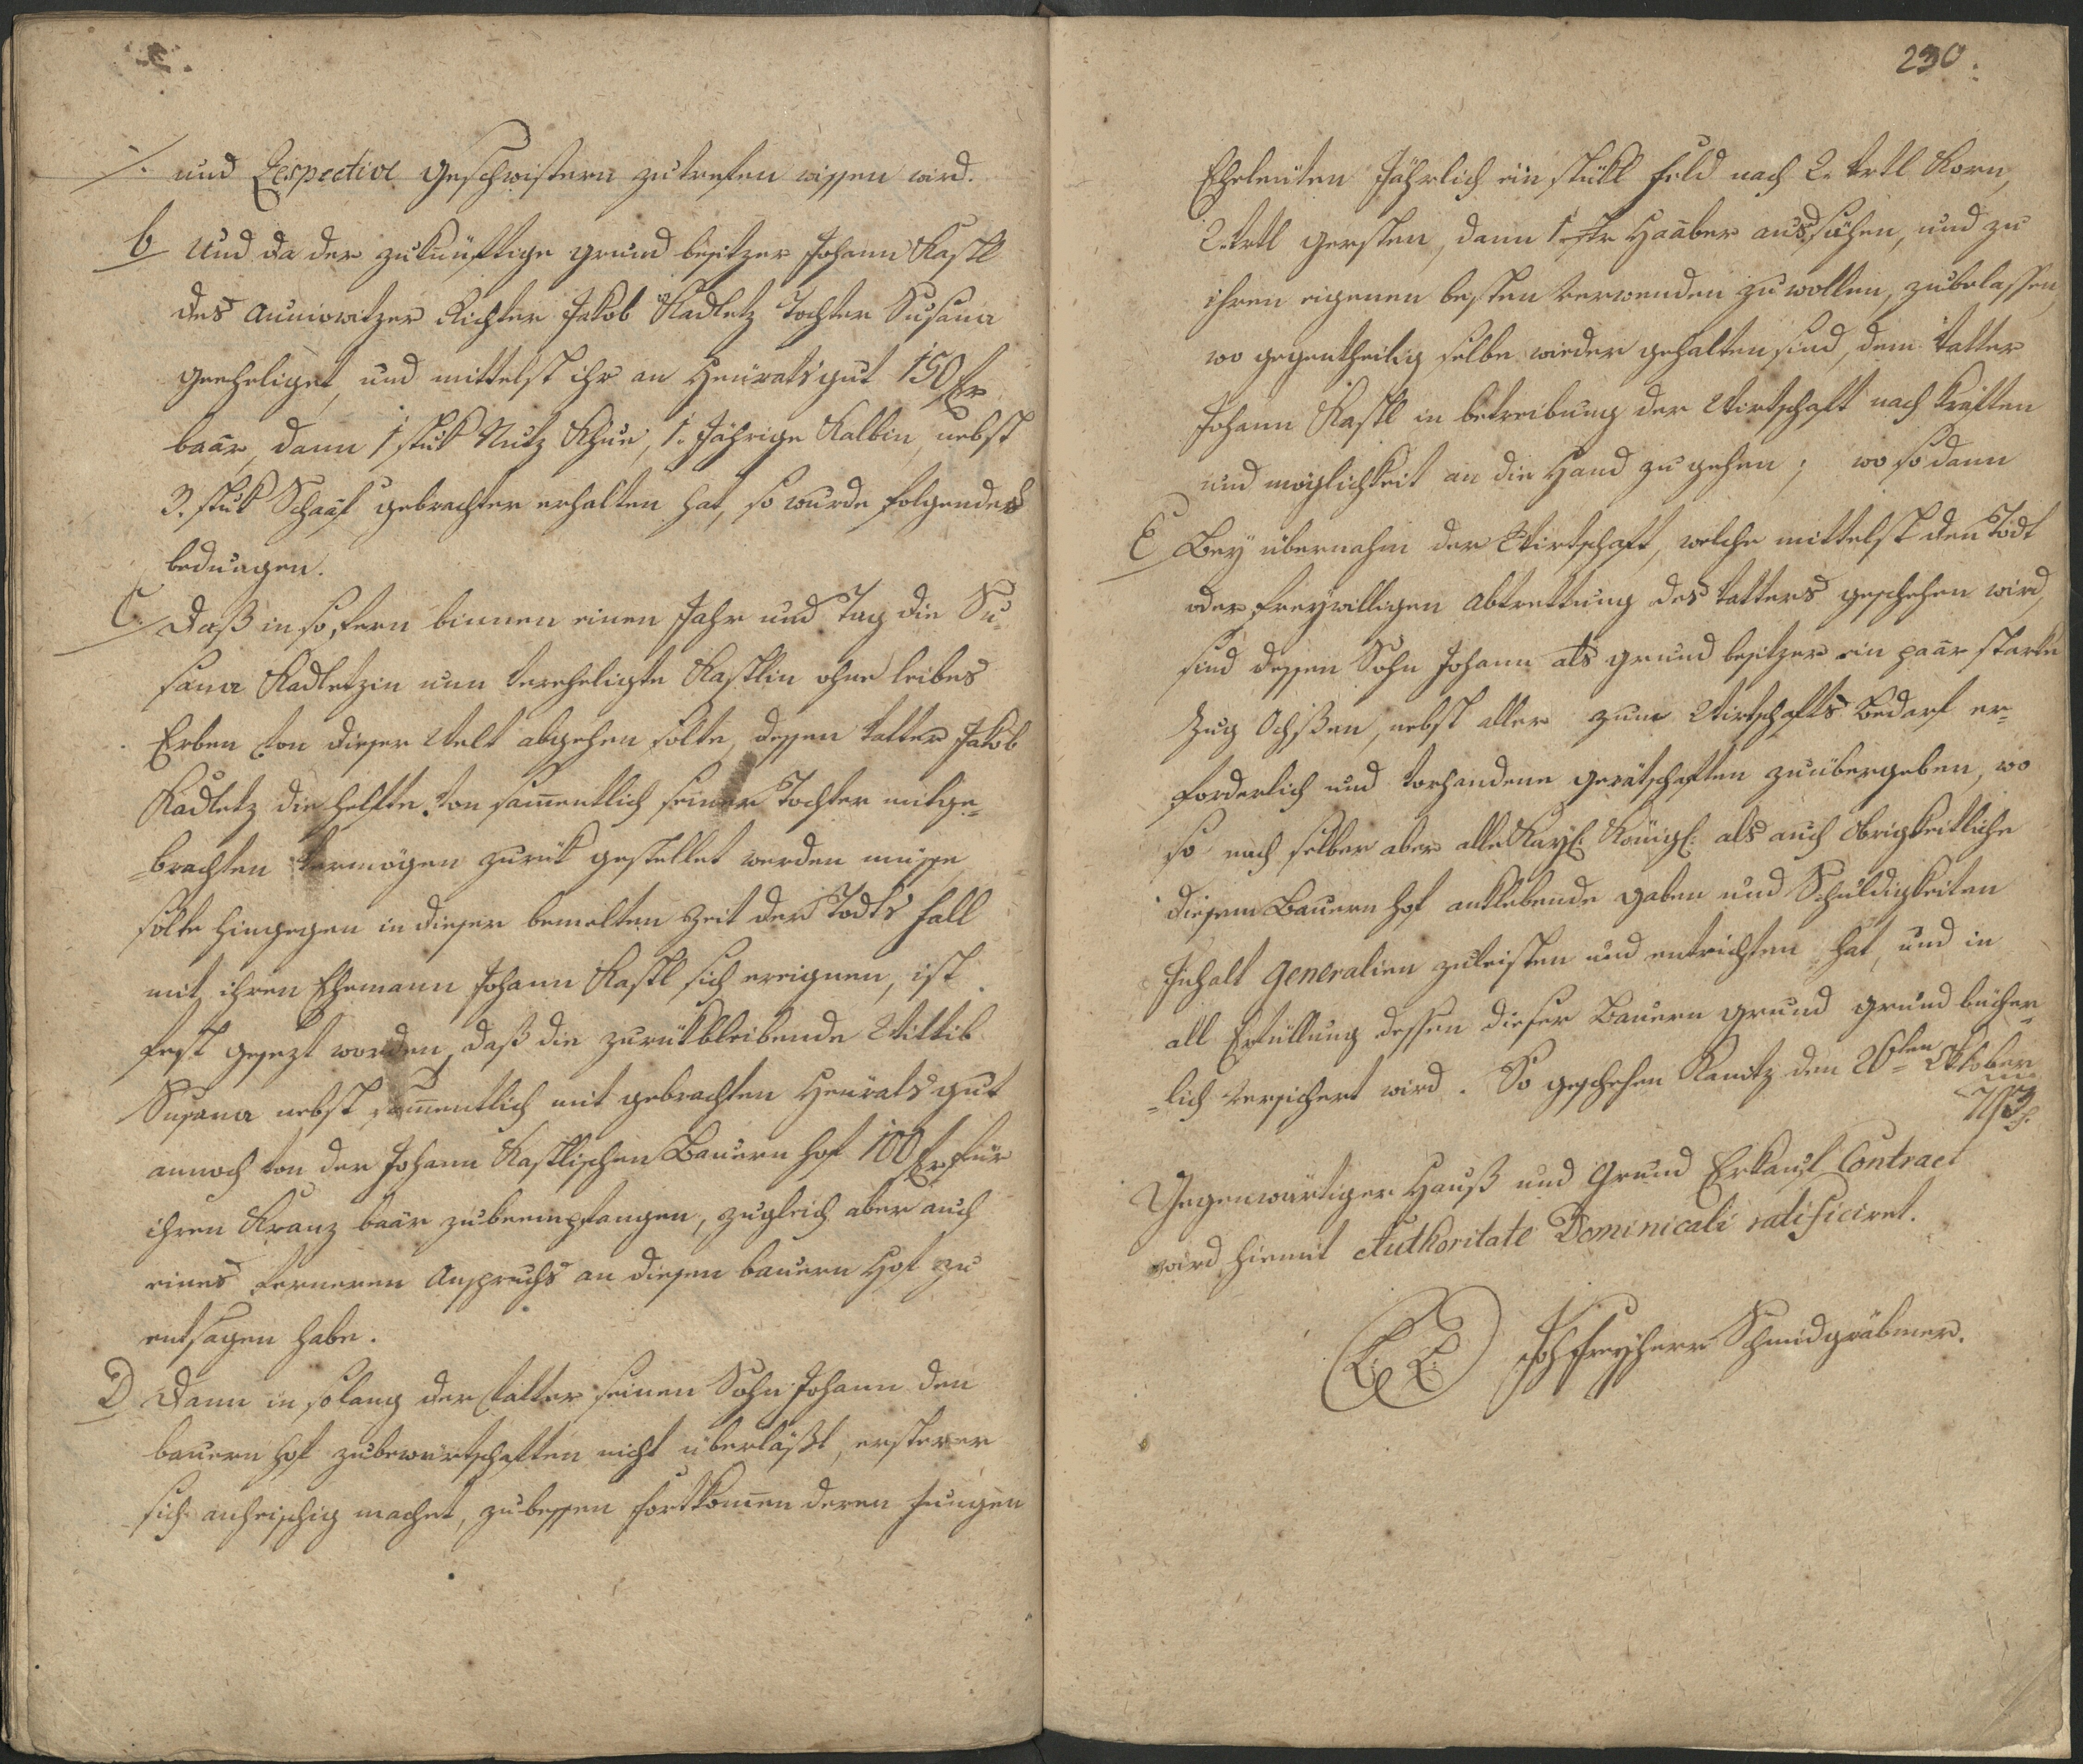 ./. und Respective geschwistern zutrefen wissen wird.
b Und da der zukünftige grund besitzer Johann Kastl
des Auniowitzer Richter Jakob Kadletz Tochter Susana
geeheliget, und mittelst ihr an Heüratsgut 150 fr
baar, dann 1 stuk Nutz Khue, 1. Jährige Kalbin, nebst
3. stuk Schaaf gebrachter erhalten hat, so wurde folgendes
bedungen.
C. Daß in so fern binnen einen Jahr und Tag die Su
sana Kadletzin nun vereheligte Kastlin ohne leibes
Erben von dieser Welt abgehen solte, dessen Vatter Jakob
Kadletz die helfte von sam̄entlich seiner Tochter mitge-
-brachten Vermögen zurük gestellet werden müsse,
solte hingegen in dieser bemelten Zeit der Todts fall
mit ihren Ehemann Johann Kastl sich ereignen, ist
fest gesezt worden, daß die zurükbleibende Wittib
Susana nebst sam̄entlich mit gebrachten Heüratsgut
annoch von der Johann Kastlischen Bauern hof 100 fr für
ihren Kranz baar zubeempfangen, zugleich aber auch
eines ferneren Anspruchs an diesen bauern Hof zu
entsagen habe.
D Dann in solang der Vatter seinen Sohn Johann den
bauern hof zubewirtschaften nicht überläßt, ersterer
sich anheischig machet, zubessen fortkom̄en deren Jungen
230.
Eheleüten Jährlich ein stükl feld nach 2. Vrtl Korn,
2. Vrtl gersten, dann 1 Haaber aussähen, und zu
ihren eigenen besten verwenden zu wollen, zubelassen,
wo gegentheilig selbe wieder gehalten sind, dem Vatter
Johann Kastl in betreibung der Wirtschaft nach kräften
und möglichkeit an die Hand zu gehen; wo so dann
E Beÿ übernahm der Wirtschaft, welche mittelst den Todt
oder freÿwilligen Abtrettung des Vatters geschehen wird,
sind dessen Sohn Johann als grund besitzer ein paar starke
Zug Ochsen, nebst aller zum Wirtschafts Bedarf er-
forderlich und vorhandene gerätschaften zuübergeben, wo
so nach selber aber alle Kaÿl: Königl: als auch Obrigkeitliche
diesem Bauern hof anklebende gaben und Schuldigkeiten
Inhalt Generalien zuleisten und entrichten hat, und in
all Erfüllung dessen dieser Bauern grund grund bücher
-lich versichert wird. So geschehen Kanitz den 26ten Oktober
Gegenwärtiger Hauß und Grund Erkauf Contract
wird hiemit Authoritate Dominicali ratificiret.
Joh Freÿherr Schmidgräbner.